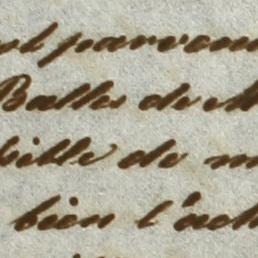 parvenu
Balles de M
bille de m
bien l'ach